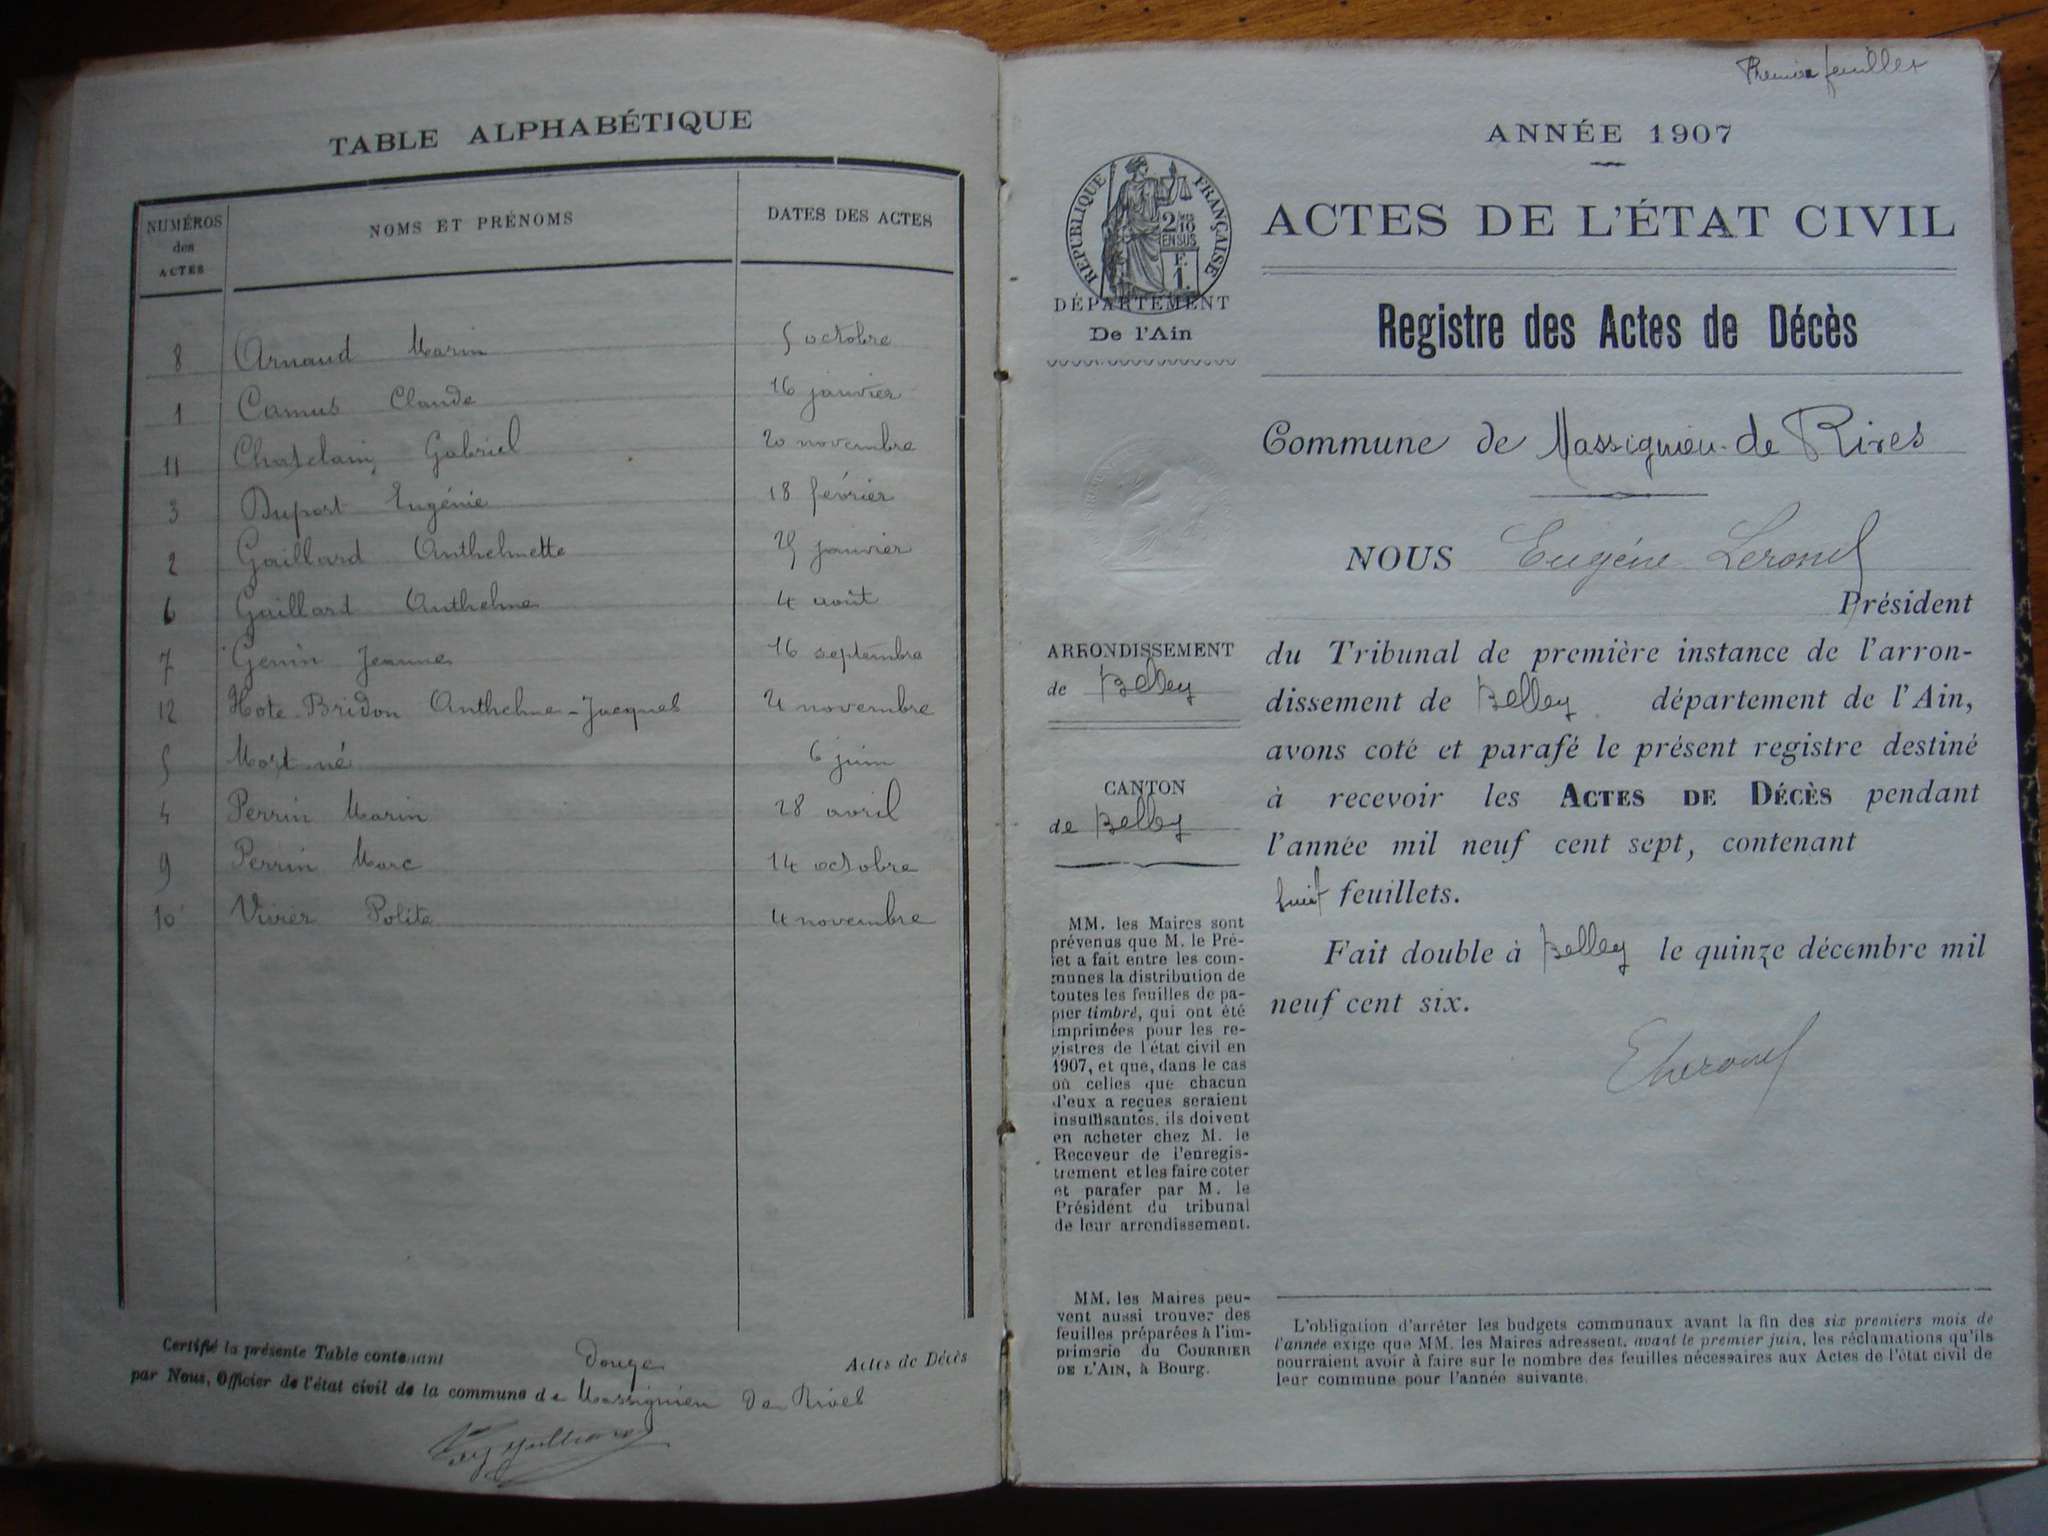 TABLE ALPHABÉTIQUE
NUMÉROS des ACTES NOMS ET PRÉNOMS DATES DES ACTES
8 Arnaud Marin 5 octobre
1 Camus Claude 16 janvier
11 Chatelain, Gabriel 20 novembre
3 Duport Eugénie 18 février
2 Gaillard Anthelmette 25 janvier
6 Gaillard Anthelme 4 août
7 Genin Jeanne 16 septembre
12 Hote-Bridon Anthelme-Jacques novembre
5 Mort né 6 juin
4 Perrin Marin 28 avril
9 Perrin Marc 14 octobre
10 Vivier Polite 4 novembre
Certifié la présente Table contenant Douze Actes de Décès
par Nous, Officier de l'état civil de la commune de Massignieu de Rives
Premier feuillet
ANNÉE 1907
RÉPUBLIQUE FRANÇAISE
2/10
EN SUS
F.
1.
ACTES DE L'ÉTAT CIVIL
DÉPARTEMENT
De l'Ain
Registre des Actes de Décès
Commune de Massignieu-de Rives
NOUS Eugène
Président
du Tribunal de première instance de l'arron-
dissement de Belley département de l'Ain,
avons coté et parafé le présent registre destiné
à recevoir les ACTES DE DÉCÈS pendant
l'année mil neuf cent sept, contenant
huit feuillets.
Fait double à Belley le quinze décembre mil
neuf cent six.
ARRONDISSEMENT
de Belley
CANTON
de Belley
MM. les Maires sont
prévenus que M. le Pré-
fet a fait entre les com-
munes la distribution de
toutes les feuilles de pa-
pier timbré, qui ont été
imprimées pour les re-
gistres de l'état civil en
1907, et que, dans le cas
où celles que chacun
d'eux a reçues seraient
insuffisantes, ils doivent
en acheter chez M. le
Receveur de l'enregis-
trement et les faire coter
et parafer par M. le
Président du tribunal
de leur arrondissement.
MM. les Maires peu-
vent aussi trouver des
feuilles préparées à l'im-
primerie du COURRIER
DE L'AIN, à Bourg.
L'obligation d'arrêter les budgets communaux avant la fin des six premiers mois de
l'année exige que MM. les Maires adressent, avant le premier juin, les réclamations qu'ils
pourraient avoir à faire sur le nombre des feuilles nécessaires aux Actes de l'état civil de
leur commune pour l'année suivante.